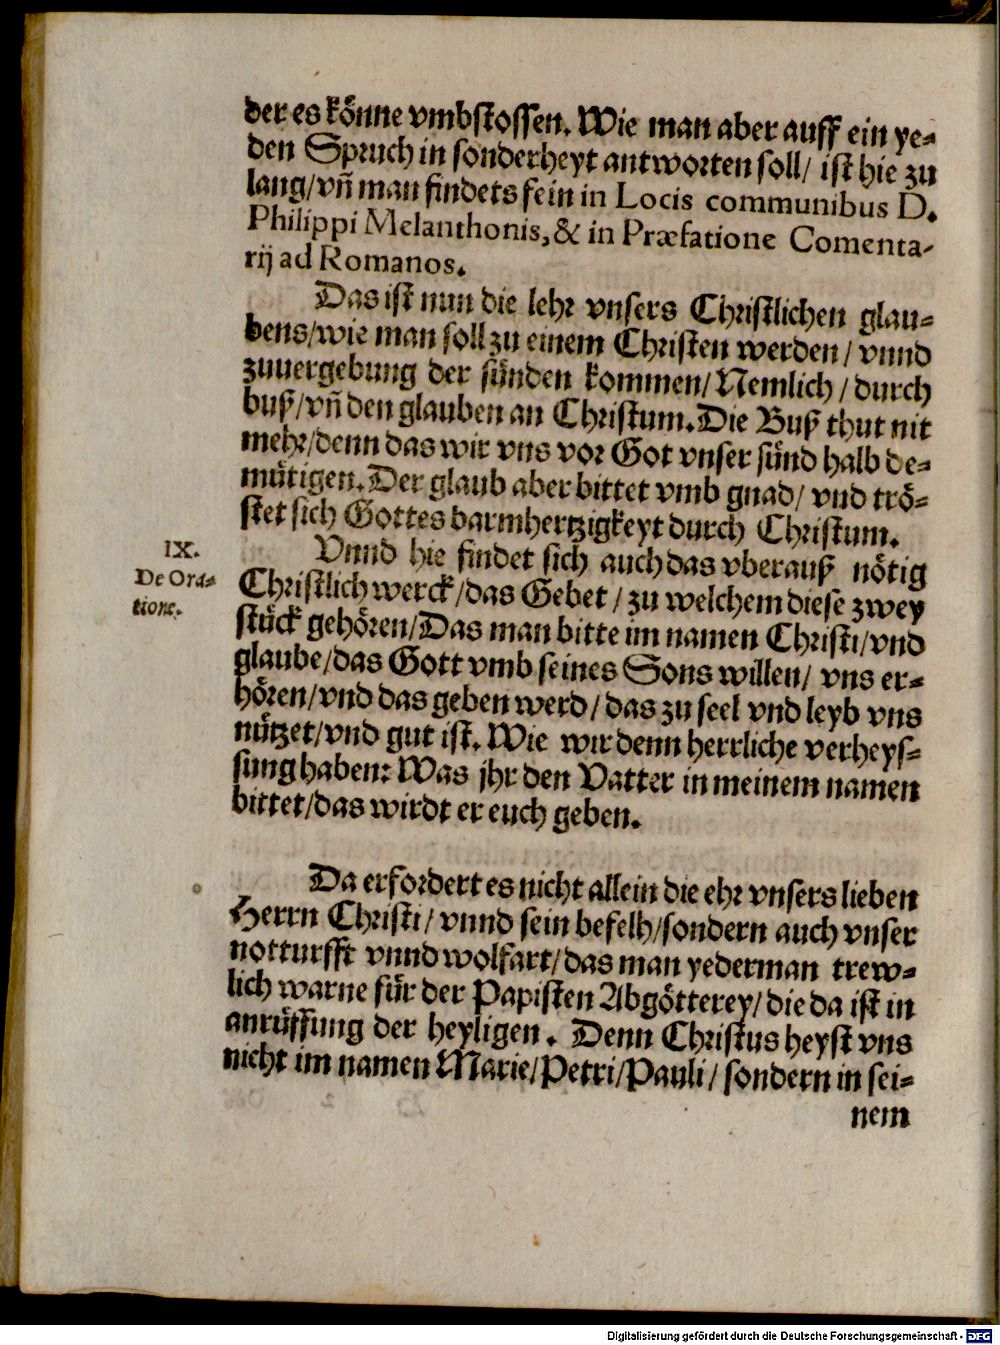 der es koͤnne vmbstossen. Wie man aber auff ein ye⸗
den Spruch in sonderheyt antworten soll/ ist hie zu
lang/vñ man findets fein in Locis communibus D.
Philippi Melanthonis, & in Præfatione Comenta-
rij ad Romanos.
Das ist nun die lehr vnsers Christlichen glau⸗
bens/wie man soll zu einem Christen werden/ vnnd
zuuergebung der suͤnden kommen/ Nemlich/ durch
buß/vñ den glauben an Christum. Die Buß thut nit
mehr/denn das wir vns vor Got vnser suͤnd halb de⸗
muͤtigen. Der glaub aber bittet vmb gnad/ vnd troͤ⸗
stet sich Gottes barmhertzigkeyt durch Christum.
IX.
De Ora-
tione.
Vnnd hie findet sich auch das vberauß noͤtig
Christlich werck/das Gebet/ zu welchem diese zwey
stuͤck gehoͤren/Das man bitte im namen Christi/vnd
glaube/das Gott vmb seines Sons willen/ vns er⸗
hoͤren/vnd das geben werd/ das zu seel vnd leyb vns
nuͤtzet/vnd gut ist. Wie wir denn herrliche verheys⸗
sung haben: Was jhr den Vatter in meinem namen
bittet/das wirdt er euch geben.
Da erfordert es nicht allein die ehr vnsers lieben
Herrn Christi/ vnnd sein befelh/sondern auch vnser
notturfft vnnd wolfart/das man yederman trew⸗
lich warne fuͤr der Papisten Abgoͤtterey/ die da ist in
anruͤffung der heyligen. Denn Christus heyst vns
nicht im namen Marie/Petri/Pauli/ sondern in sei⸗
nem
Digitalisierung gefördert durch die Deutsche Forschungsgemeinschaft - DFG